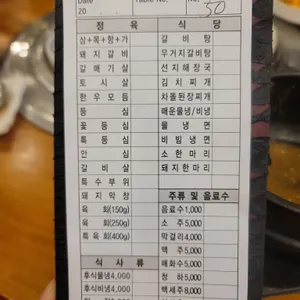 Date
20 .
Table No.
50
정 육
식 당
삼+목+항+가
갈 비 탕
돼 지 갈 비
우거지갈비탕
갈 매 기 살
선지해장국
토 시 살
김 치 찌 개
한 우 모 듬
차돌된장찌개
등 심
매운물냉/비냉
꽃 등 심
물 냉 면
특 등 심
비 빔 냉 면
안 심
소 한 마 리
갈 비 살
돼지한마리
특 수 부 위
돼 지 막 창
주류 및 음료수
육 회(150g)
음료수1,000
육 회(250g)
소 주5,000
특 육 회(400g)
막걸리4,000
맥 주5,000
식 사 류
매화수5,000
후식물냉4,000
청 하5,000
후식비냉4,000
백세주8,000